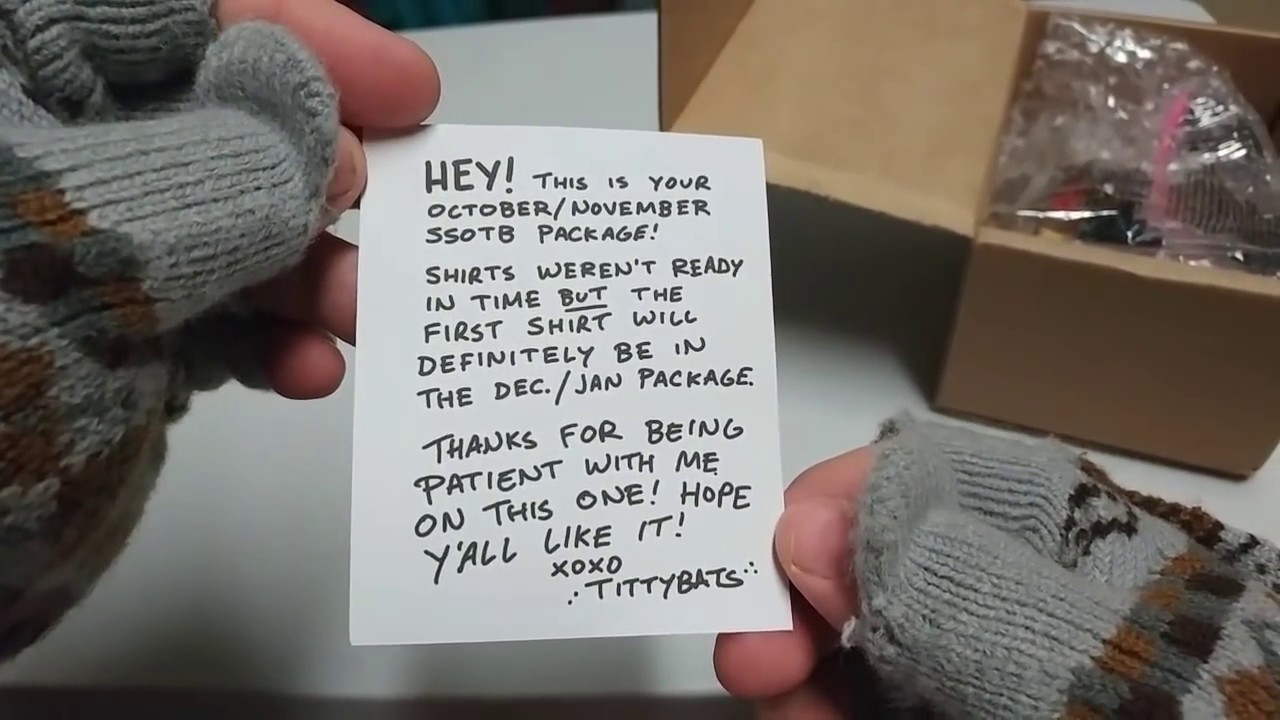 HEY! THIS IS YOUR
OCTOBER/NOVEMBER
SSOTB PACKAGE!
SHIRTS WEREN'T READY
IN TIME BUT THE
FIRST SHIRT WILL
DEFINITELY BE IN
THE DEC./JAN PACKAGE.
THANKS FOR BEING
PATIENT WITH ME
ON THIS ONE! HOPE
Y'ALL LIKE IT!
XOXO
.:TITTYBATS:.